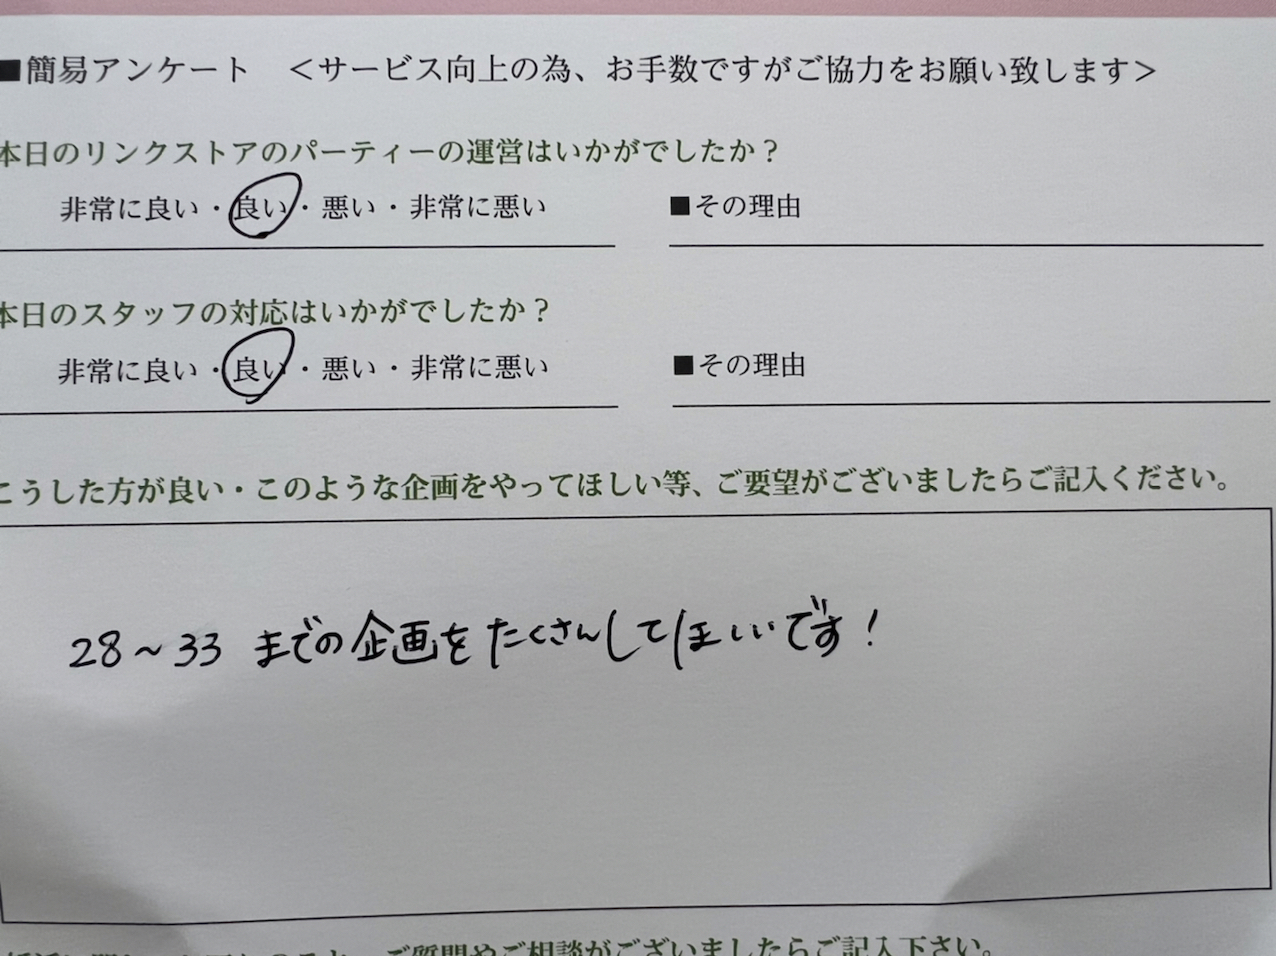 ■簡易アンケート ＜サービス向上の為、お手数ですがご協力をお願い致します＞
本日のリンクストアのパーティーの運営はいかがでしたか？
非常に良い・良い・悪い・非常に悪い ■その理由
本日のスタッフの対応はいかがでしたか？
非常に良い・良い・悪い・非常に悪い ■その理由
こうした方が良い・このような企画をやってほしい等、ご要望がございましたらご記入ください。
28～33 までの企画をたくさんしてほしいです！
ご質問やご相談がございましたらご記入下さい。